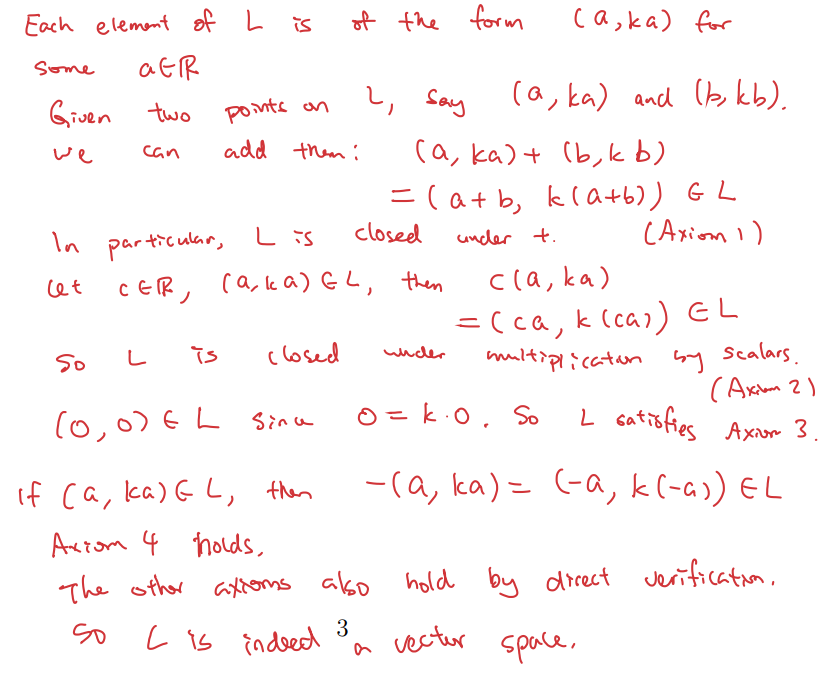 Each element of L is of the form (a, ka) for
some a∈ℝ
Given two points on L, say (a, ka) and (b, kb).
we can add them: (a, ka) + (b, k b)
= (a+b, k(a+b)) ∈ L
In particular, L is closed under +. (Axiom 1)
Let c∈ℝ, (a, ka) ∈ L, then c(a, ka)
= (ca, k(ca)) ∈ L
So L is closed under multiplication by scalars.
(Axiom 2)
(0, 0) ∈ L since 0 = k·0. So L satisfies Axiom 3.
if (a, ka) ∈ L, then -(a, ka) = (-a, k(-a)) ∈ L
Axiom 4 holds.
The other axioms also hold by direct verification.
So L is indeed a vector space.
3